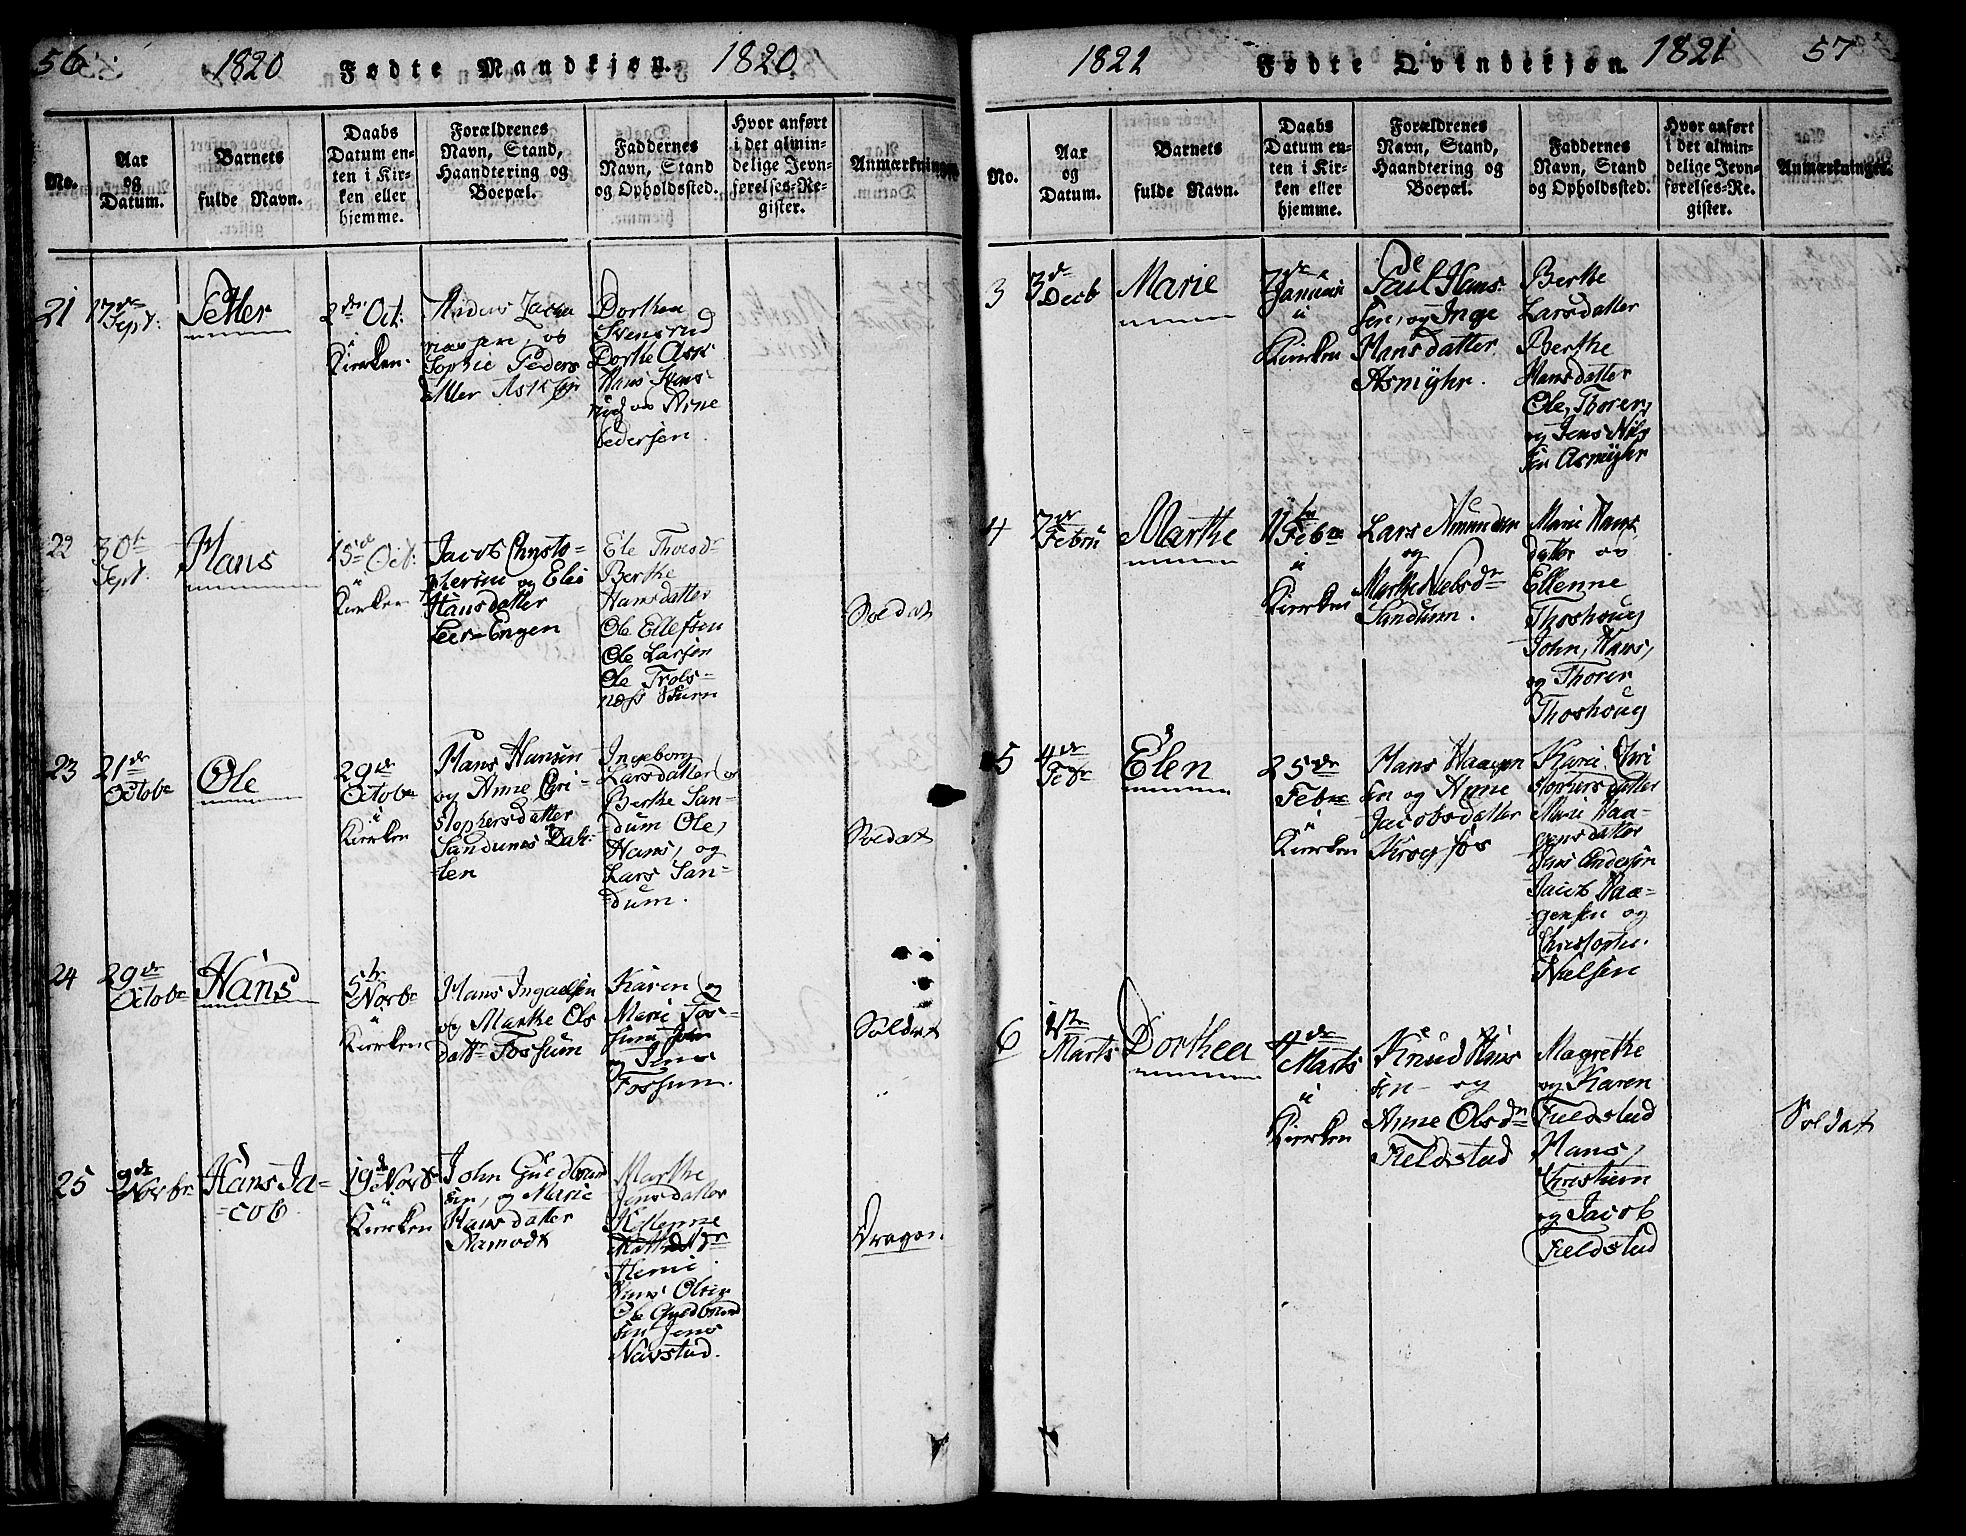 56
1820
Fødte Mandkjøn.
1820
No.
Aar
og
Datum.
Barnets
fulde Navn.
Daabs
Datum en-
ten i Kir-
ken eller
hjemme.
Forældrenes
Navn, Stand,
Haandtering og
Boepæl.
Faddernes
Navn, Stand
og Opholdssted.
Hvor anført
i det almin-
delige Jevn-
førelses-Re-
gister.
Anmærkninger
21
17de
Sept:
Petter
2den Oct:
i
Kierken.
Sophie Peders
datter
Dorthea
Svensrud
Dorthe
og Arne
Pedersen.
22
30te
Sept.
Hans
15de Oct:
i
Kierken
Jacob Christo-
og
Hansdatter
Leer-Engen
Berthe
Hansdatter
Ole Ellefsen
Ole Larsen
Ole
Soldat
23
21de
Octobr
Ole
29de
Octobr
i
Kierken
Hans Hansen
og Anne Chri-
stophersdatter
Ingeborg
Larsdatter og
Berthe San-
dum Ole,
Hans, og
Lars San-
dum.
Soldat
24
29de
Octobr
Hans
5te
Novbr
i
Kierken
Hans
og Marthe Ols
datr Fossum
Karen og
Marie Fos-
sum
Fossum.
Soldat
25
9de
Novbr
Hans Ja-
cob
19de Novbr
i
Kierken
John Guldbrand
sen, og Marie
Hansdatter
Marthe
Jensdatter
Hans Olsen
Ole Guldbrand
sen Jens
Dragon.
1821
Fødte Qvindekjøn.
1821
57
No.
Aar
og
Datum.
Barnets
fulde Navn.
Daabs
Datum en-
ten i Kir-
ken eller
hjemme.
Forældrenes
Navn, Stand,
Haandtering og
Boepæl.
Faddernes
Navn, Stand
og Opholdsted.
Hvor anført
i det almin-
delige Jevn-
førelses-Re-
gister.
Anmærkninger.
3
3de
Decb
Marie
7de
Januar
i
Kierken
Poul Hans
sen, og Inge
Hansdatter
Asmyhr.
Berthe
Larsdatter
Berthe
Hansdatter
Ole, Thorer,
og Jens Nils
sen Asmyhr
4
7de
Febru
Marthe
11te
Febr
i
Kierken
Lars Amundsen
og
Marthe Nielsdr
Sandum.
Marie Hans
datter og
Ellenne
Thoshoug
John, Hans,
og Thorer
Thoshoug
5
4de
Febr
Elen
25de
Febr
i
Kierken
Hans Haagen
sen og Anne
Jacobsdatter
Krogfos
Karie Chri
stophersdatter
Marie Haa-
gensdatter
Lars Andersen
Jacob Haa-
gensen og
Christopher
Nielsen
6
1ste
Marts
Dorthea
4de
Marts
i
Kierken
Knud Hans
sen og
Anne Olsdr
Fieldstad
Magrethe
og Karen
Fieldstad
Hans,
Christian
og Jacob
Fieldstad
Soldat